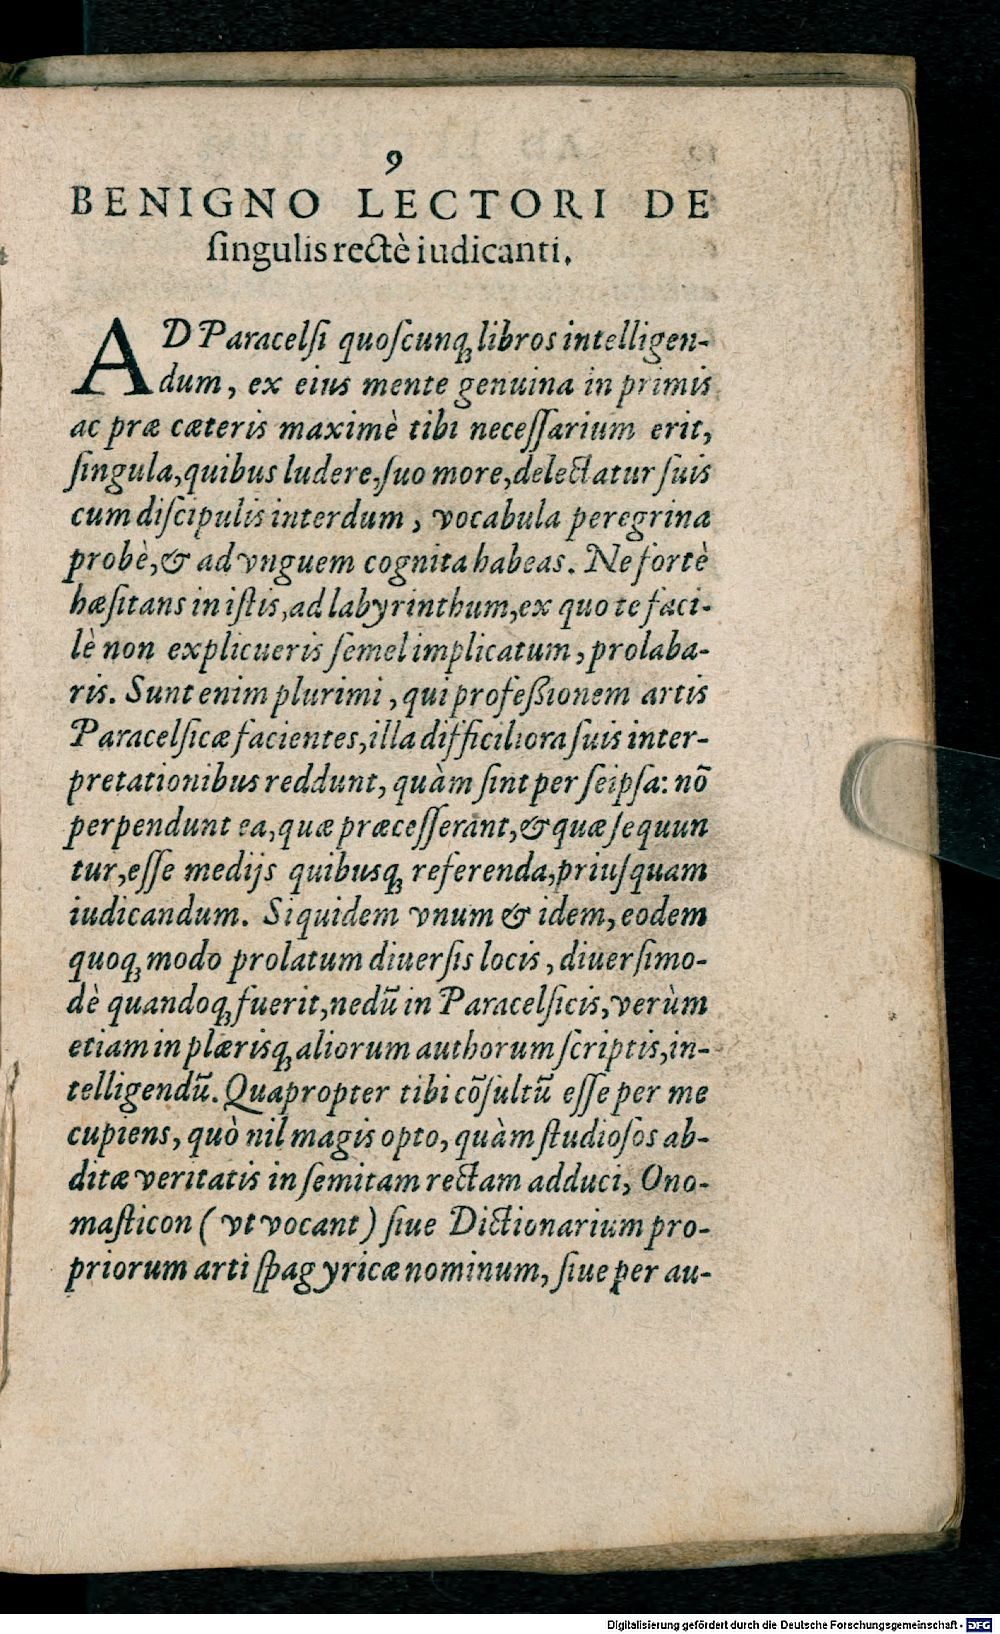 9
BENIGNO LECTORI DE
ſingulis rectè iudicanti.
AD Paracelſi quoſcunq; libros intelligen-
dum, ex eius mente genuina in primis
ac præ cæteris maximè tibi neceſſarium erit,
ſingula, quibus ludere, ſuo more, delectatur ſuis
cum diſcipulis interdum, vocabula peregrina
probè, & ad vnguem cognita habeas. Ne fortè
hæſitans in iſtis, ad labyrinthum, ex quo te faci-
lè non explicueris ſemel implicatum, prolaba-
ris. Sunt enim plurimi, qui profeßionem artis
Paracelſicæ facientes, illa difficiliora ſuis inter-
pretationibus reddunt, quàm ſint per ſeipſa: nō
perpendunt ea, quæ præceſſerant, & quæ ſequun
tur, eſſe medijs quibusq; referenda, priuſquam
iudicandum. Siquidem vnum & idem, eodem
quoq; modo prolatum diuerſis locis, diuerſimo-
dè quandoq; fuerit, nedū in Paracelſicis, verùm
etiam in plærisq; aliorum authorum ſcriptis, in-
telligendū. Quapropter tibi cōſultū eſſe per me
cupiens, quò nil magis opto, quàm ſtudioſos ab-
ditæ veritatis in ſemitam rectam adduci, Ono-
maſticon ( vt vocant ) ſiue Dictionarium pro-
priorum arti ſpagyricæ nominum, ſiue per au-
Digitalisierung gefördert durch die Deutsche Forschungsgemeinschaft - DFG